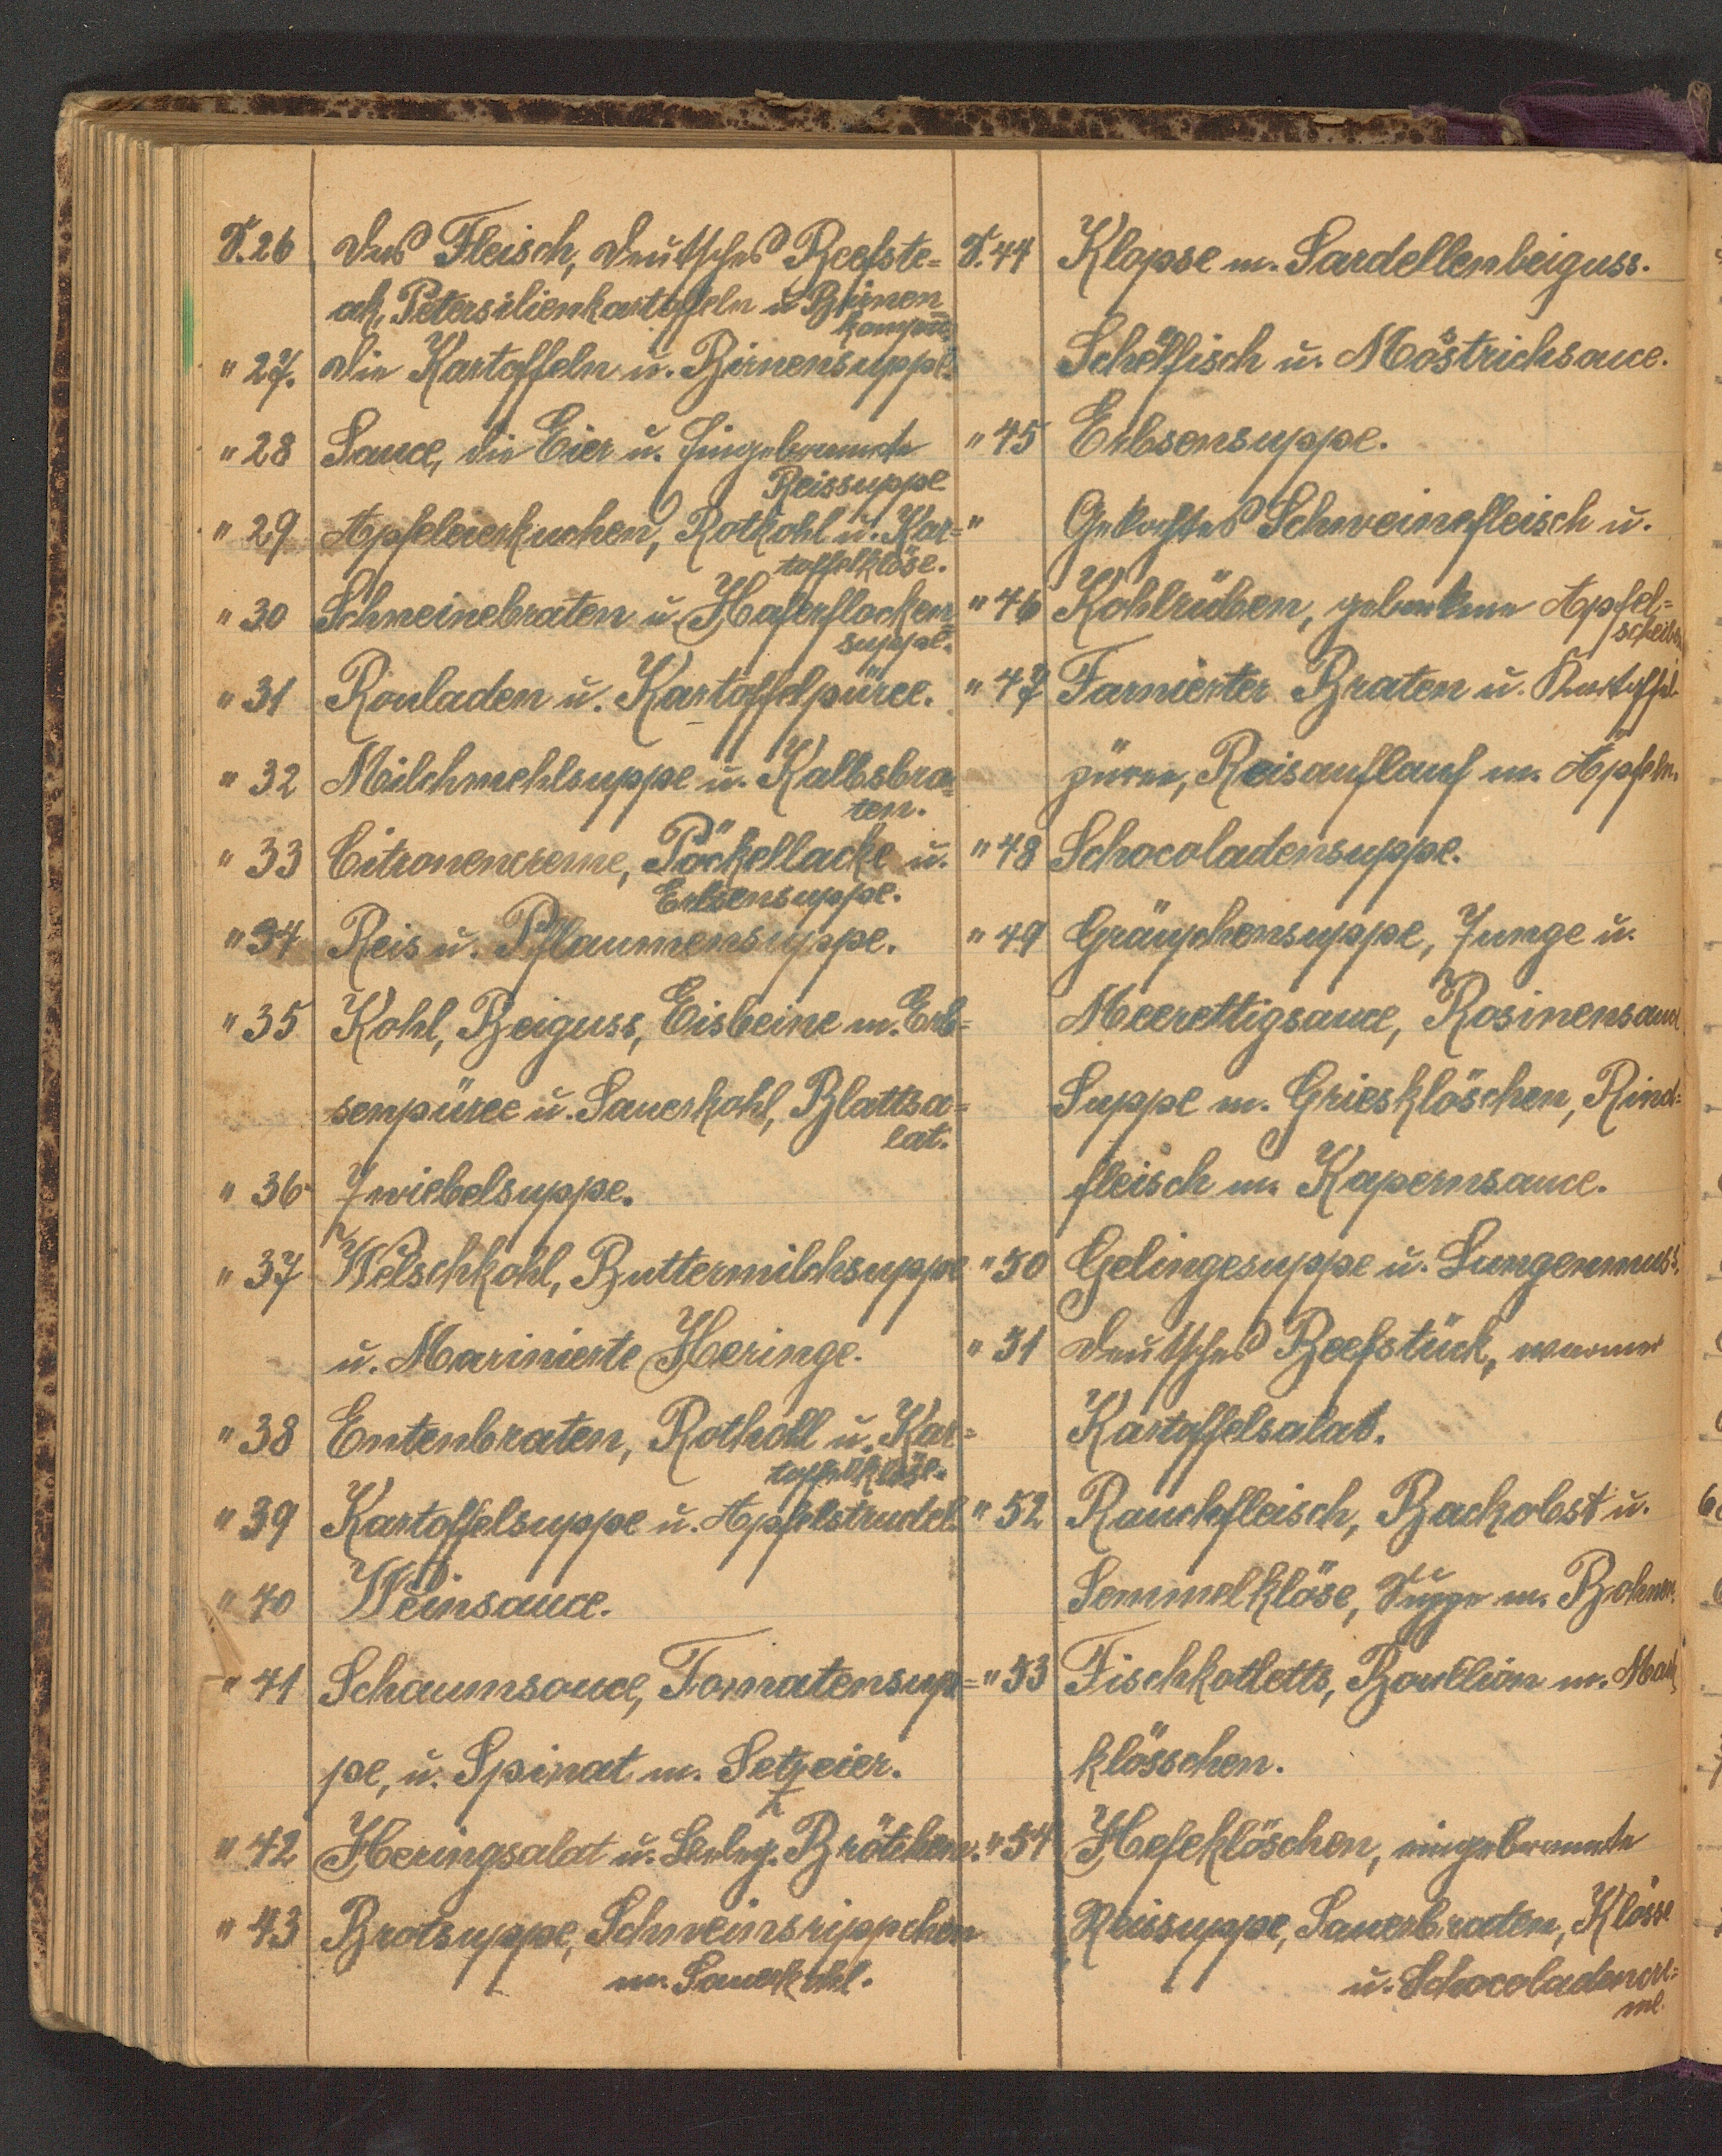 S. 26 Das Fleisch, Deutsches Beefste=
ak, Petersilienkartoffeln u. Birnen
kompott.
" 27. Die Kartoffeln u. Birnensuppe.
" 28 Sauce, die Eier u. Eingebrannte
Reissuppe
" 29 Apfeleierkuchen, Rotkohl u. Kar=
toffelklöse.
" 30 Schweinebraten u. Haferflocken=
suppe.
" 31 Rouladen u. Kartoffelpüree.
" 32 Milchmehlsuppe u. Kalbsbra=
ten.
" 33 Citronencreme, Pöckellacke u.
Erbsensuppe.
" 34 Reis u. Pflaumensuppe.
" 35 Kohl, Beiguss, Eisbeine m. Erb=
senpüree u. Sauerkohl, Blattsa=
lat.
" 36 Zwiebelsuppe.
" 37 Welschkohl, Buttermilchsuppe
u. Marinierte Heringe.
" 38 Entenbraten, Rotkohl u. Kar=
toffelklöse.
" 39 Kartoffelsuppe u. Apfelstrudel.
" 40 Weinsauce.
" 41 Schaumsauce, Tomatensup=
pe, u. Spinat m. Setzeier.
" 42 Heringsalat u. Beleg. Brötchen.
" 43 Brotsuppe, Schweinsrippchen
m. Sauerkohl.
S. 44 Klopse m. Sardellenbeiguss.
Schellfisch u. Möstrichsauce.
" 45 Erbsensuppe.
" Gekochtes Schweinefleisch u.
" 46 Kohlrüben, gebackene Apfel=
scheiben
" 47 Farnierter Braten u. Kartoffel-
püree, Reisauflauf m. Äpfeln.
" 48 Schocoladensuppe.
" 49 Gräupchensuppe, Zunge u.
Meerettigsauce, Rosinensauce
Suppe m. Griesklöschen, Rind=
fleisch m. Kapernsauce.
" 50 Gelingesuppe u. Lungenmuss.
" 51 Deutsches Beefstück, warmer
Kartoffelsalat.
" 52 Rauchfleisch, Backobst u.
Semmelklöse, Suppe m. Bohnen.
" 53 Fischkotletts, Bouillion m. Mark
klösschen.
" 54 Hefeklöschen, eingebrannte
Reissuppe, Sauerbraten, Klösse
u. Schocoladencre=
me.